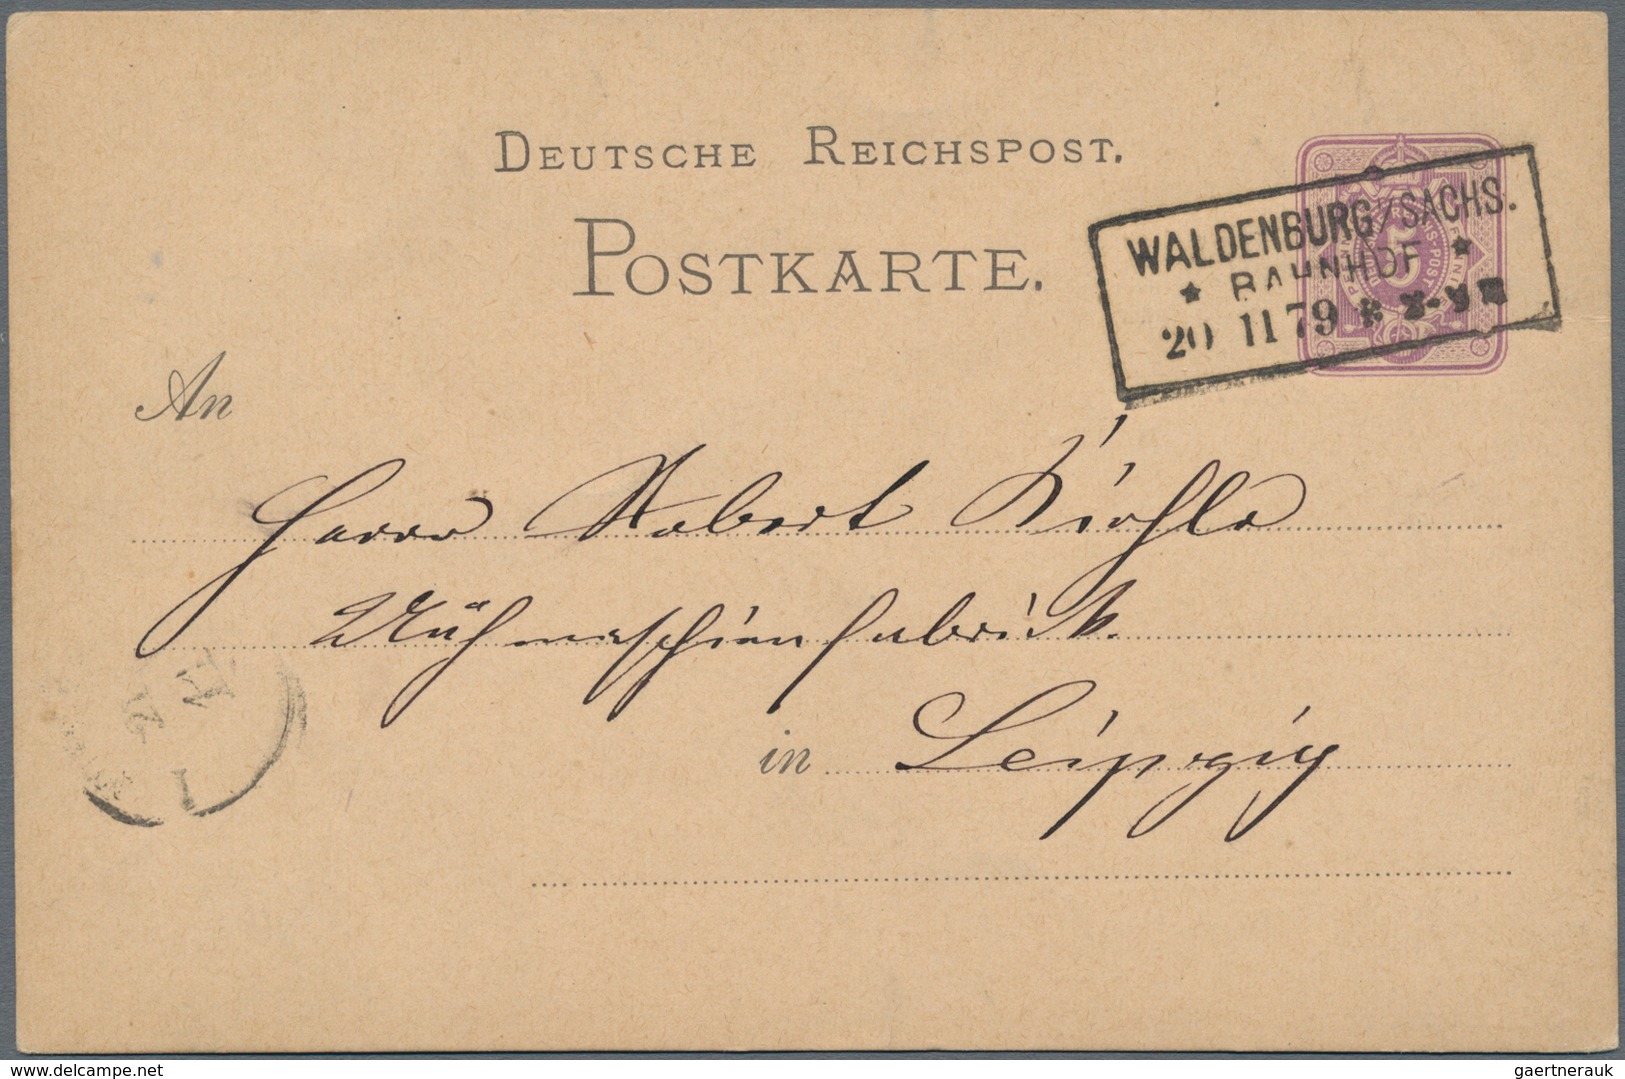 DEUTSCHE REICHSPOST.
POSTKARTE.
WALDENBURG/SACHS.
* BAHNHOF *
20 11 79
An
Herrn Robert Kiehle
Nähmaschinenfabrik.
in Leipzig
I
www.delcampe.net
gaertnerauk